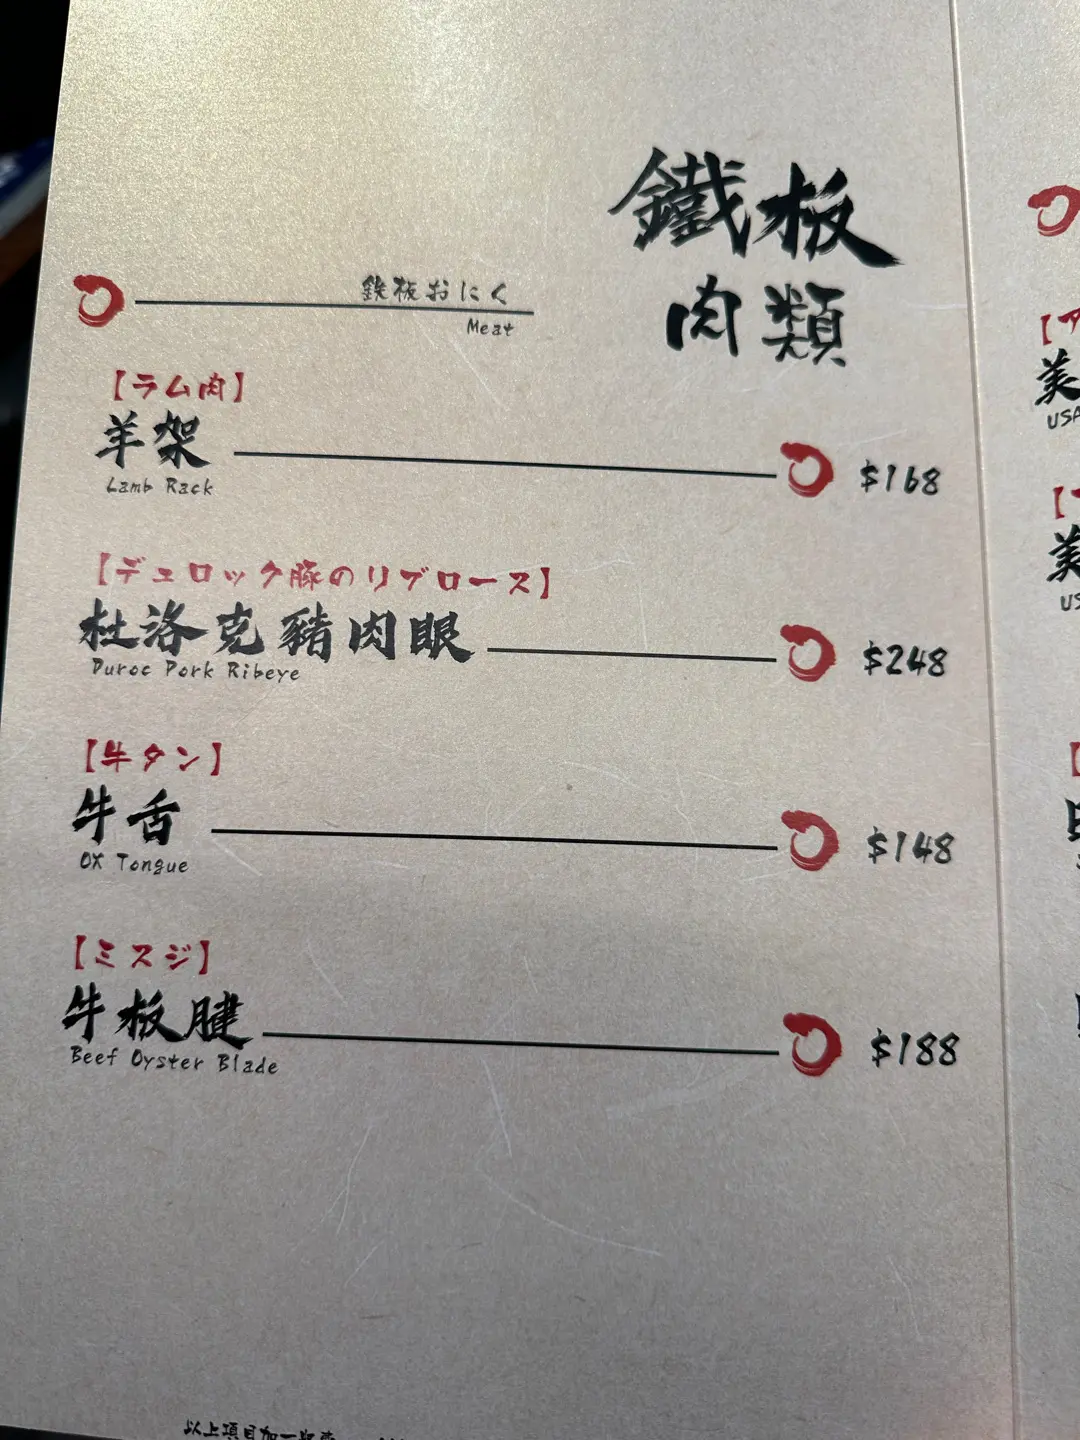 鐵板
肉類
鉄板おにく
Meat
【ラム肉】
羊架
Lamb Rack
$168
【デュロック豚のリブロース】
杜洛克豬肉眼
Duroc Pork Ribeye
$248
【牛タン】
牛舌
OX Tongue
$148
【ミスジ】
牛板腱
Beef Oyster Blade
$188
以上項目加一
美
USA
美